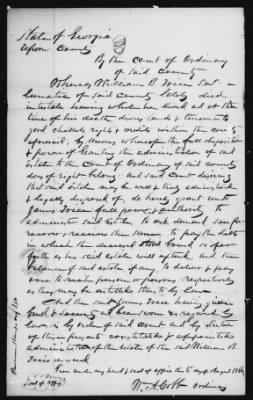 State of Georgia
Upson County
By the Court of Ordinary
of said County
Whereas William B. late
of said County lately died
intestate having whilst he lived and at the
time of his death divers lands & tenements
goods chattels rights & credits within the County
aforesaid, by means whereof the full disposition
& power of granting the administration of said
estate to the Court of Ordinary of said county
does of right belong and said Court desiring
that said estate may be well & truly administered
& legally disposed of, do hereby grant unto
James full power & authority to
administer said estate, to ask demand sue for
recover & receive the same to pay the debts
in which the deceased stood bound so far
forth as his said estate will extend and then
balance of said estate if any to deliver & pay
over to such person or persons respectively
as they may be entitled thereto by law
And the said James having given
bond & security as required by
law is by order of said Court and by virtue
of these presents constituted & appointed
administrator of the estate of the said William B.
deceased
Given under my hand & seal of office this day of August
W. A. Cobb Ordinary